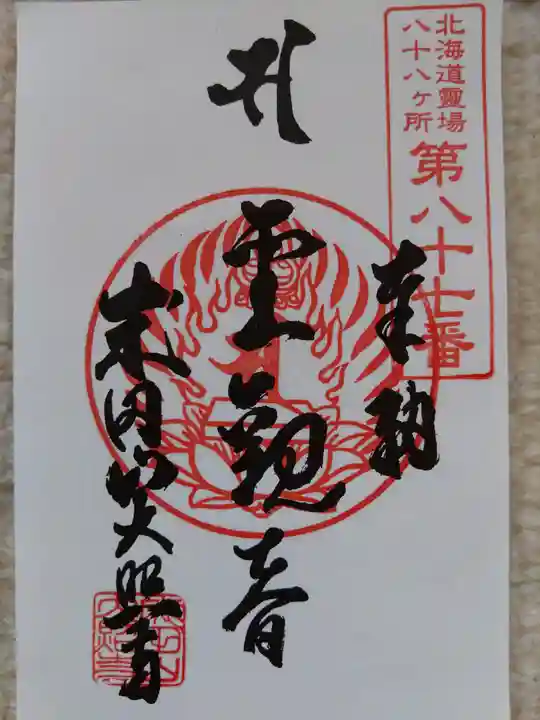 北海道靈場
八十八ヶ所
第八十七番
奉納
聖観音
山大照寺